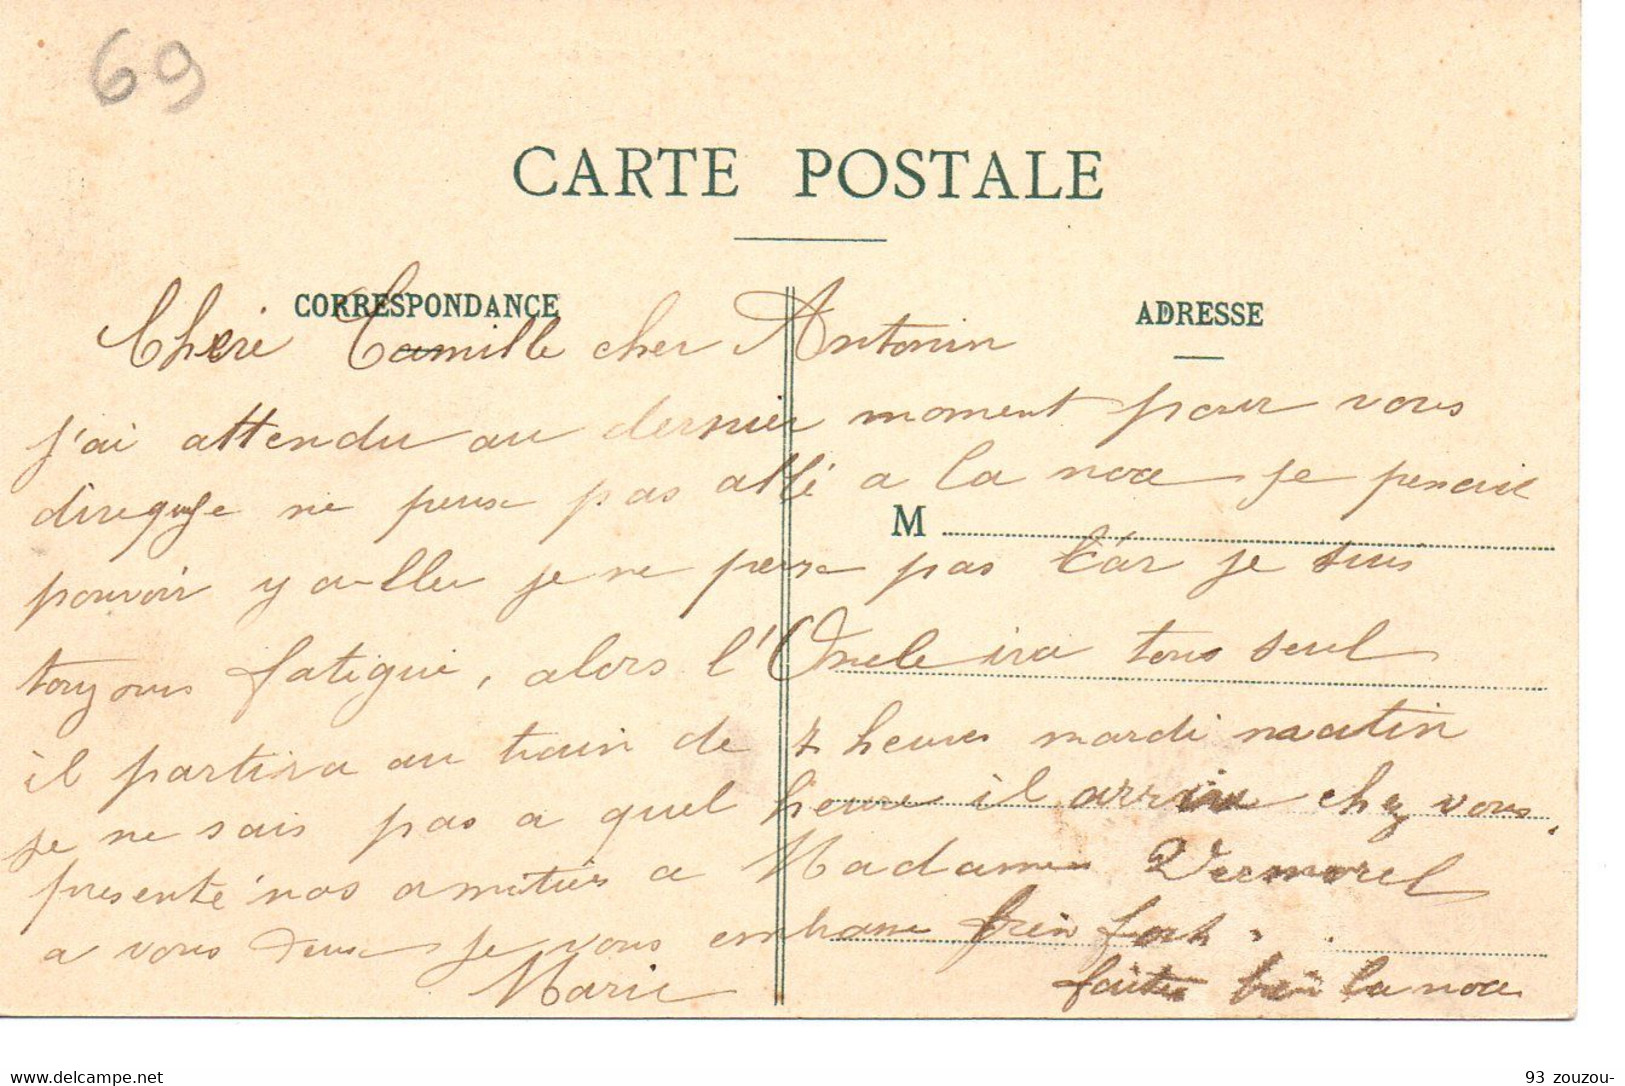 69
CARTE POSTALE
CORRESPONDANCE
ADRESSE
Cheri Camille cher Antonin
j'ai attendu au dernier moment pour vous
dire que je ne peux pas allé a la noce je pensait
M
pouvoir y aller je ne peux pas car je suis
toujours fatigué, alors l'Oncle ira tous seul
il partira au train de 7 heures mardi matin
je ne sais pas a quel heure il arrive chez vous.
presente nos amitiés a Madame Vermorel
a vous deux je vous embrasse bien fort.
Marie
faites bien la noce
www.delcampe.net
93 zouzou-